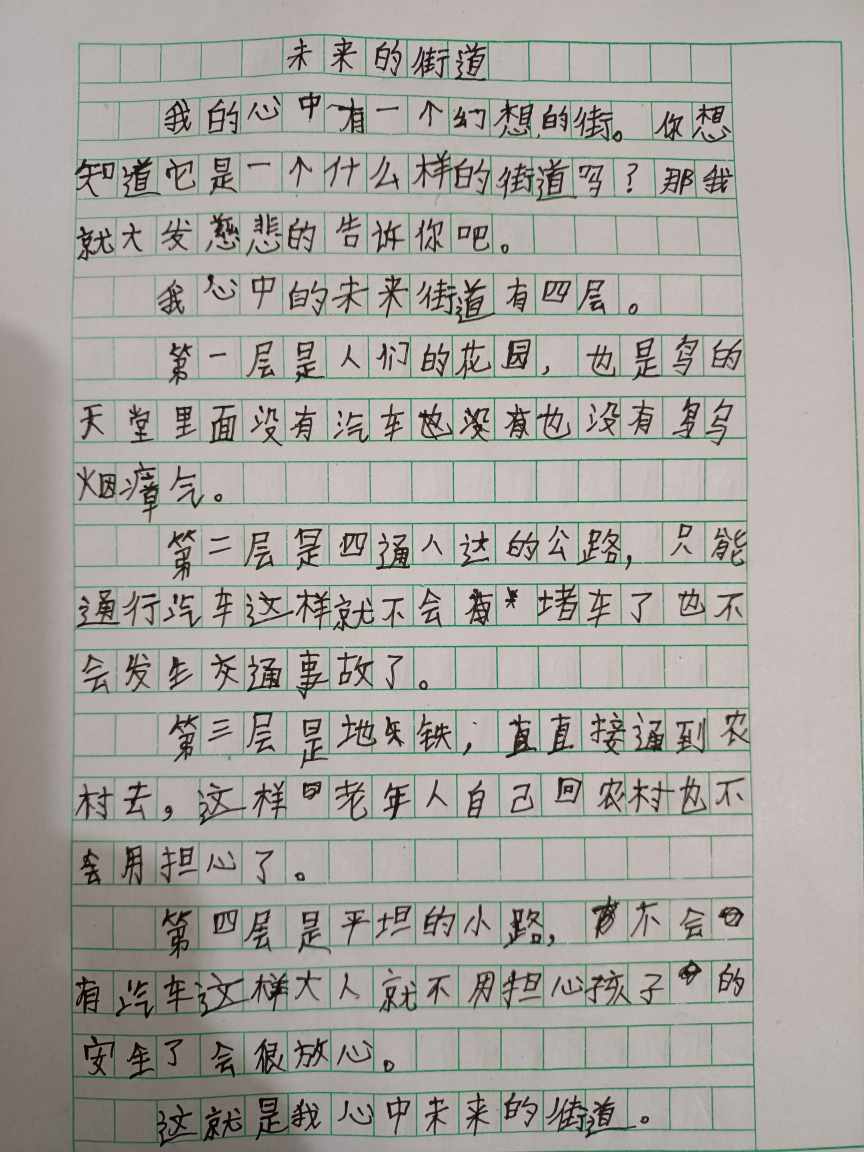 未来的街道
我的心中有一个幻想的街。你想
知道它是一个什么样的街道吗？那我
就大发慈悲的告诉你吧。
我心中的未来街道有四层。
第一层是人们的花园，也是鸟的
天堂里面没有汽车也没有也没有乌乌
烟瘴气。
第二层是四通人达的公路，只能
通行汽车这样就不会有堵车了也不
会发生交通事故了。
第三层是地铁，直直接通到农
村去，这样老年人自己回农村也不
会用担心了。
第四层是平坦的小路，不会
有汽车这样大人就不用担心孩子的
安全了会很放心。
这就是我心中未来的街道。